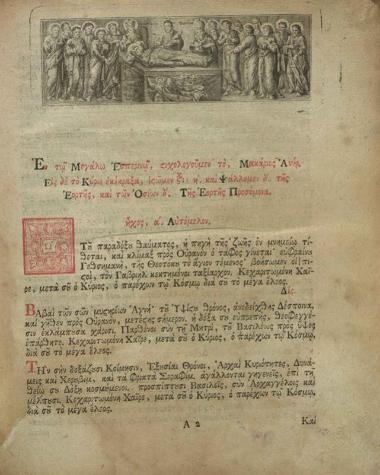 Ἐν τῷ Μεγάλῳ Ἑσπερινῷ, στιχολογοῦμεν τὸ, Μακάριος Ἀνήρ.
Εἰς δὲ τὸ Κύριε ἐκέκραξα, ἱςῶμεν ςί: η. καὶ Ψάλλομεν δ. τῆς
Ἑορτῆς, καὶ τῶν Ὁσίων δ. Τῆς Ἑορτῆς Προσόμοια.
Ἦχος, α. Αὐτόμελον.
Ὢ Τοῦ παραδόξου θαύματος, ἡ πηγὴ τῆς ζωῆς ἐν μνημείῳ τί-
θεται, καὶ κλίμαξ πρὸς Οὐρανὸν ὁ τάφος γίνεται· εὐφραίνου
Γεθσημανῆ, τῆς Θεοτόκου τὸ ἅγιον τέμενος· Βοήσωμεν οἱ πι-
ςοὶ, τὸν Γαβριὴλ κεκτημένοι ταξίαρχον. Κεχαριτωμένη Χαῖ-
ρε, μετὰ σοῦ ὁ Κύριος, ὁ παρέχων τῷ Κόσμῳ διὰ σοῦ τὸ μέγα ἔλεος.
Δίς
Βαβαὶ τῶν σῶν μυςηρίων Ἁγνή· τοῦ Ὑψίςου θρόνος, ἀνεδείχθης Δέσποινα,
καὶ γῆθεν πρὸς Οὐρανὸν, μετέςης σήμερον, ἡ δόξα σου εὐπρεπὴς, θεοφεγγέ-
σιν ἐκλάμπουσα χάρισι. Παρθένοι σὺν τῇ Μητρὶ, τοῦ Βασιλέως πρὸς ὕψος
ἐπάρθητε. Κεχαριτωμένη Χαῖρε, μετὰ σοῦ ὁ Κύριος, ὁ παρέχων τῷ Κόσμῳ,
διὰ σοῦ τὸ μέγα ἔλεος.
Τὴν σὴν δοξάζουσι Κοίμησιν, Ἐξουσίαι Θρόνοι, Ἀρχαὶ Κυριότητες, Δυνά-
μεις καὶ Χερουβὶμ, καὶ τὰ φρικτὰ Σεραφίμ. ἀγάλλονται γηγενεῖς, ἐπὶ τῇ
θείᾳ σου Δόξῃ κοσμούμενοι. προσπίπτουσι Βασιλεῖς, σὺν Ἀρχαγγέλοις καὶ
μέλπουσι. Κεχαριτωμένη Χαῖρε, μετὰ σοῦ ὁ Κύριος, ὁ παρέχων τῷ Κόσμῳ,
διὰ σοῦ τὸ μέγα ἔλεος.
Α 2
Καὶ